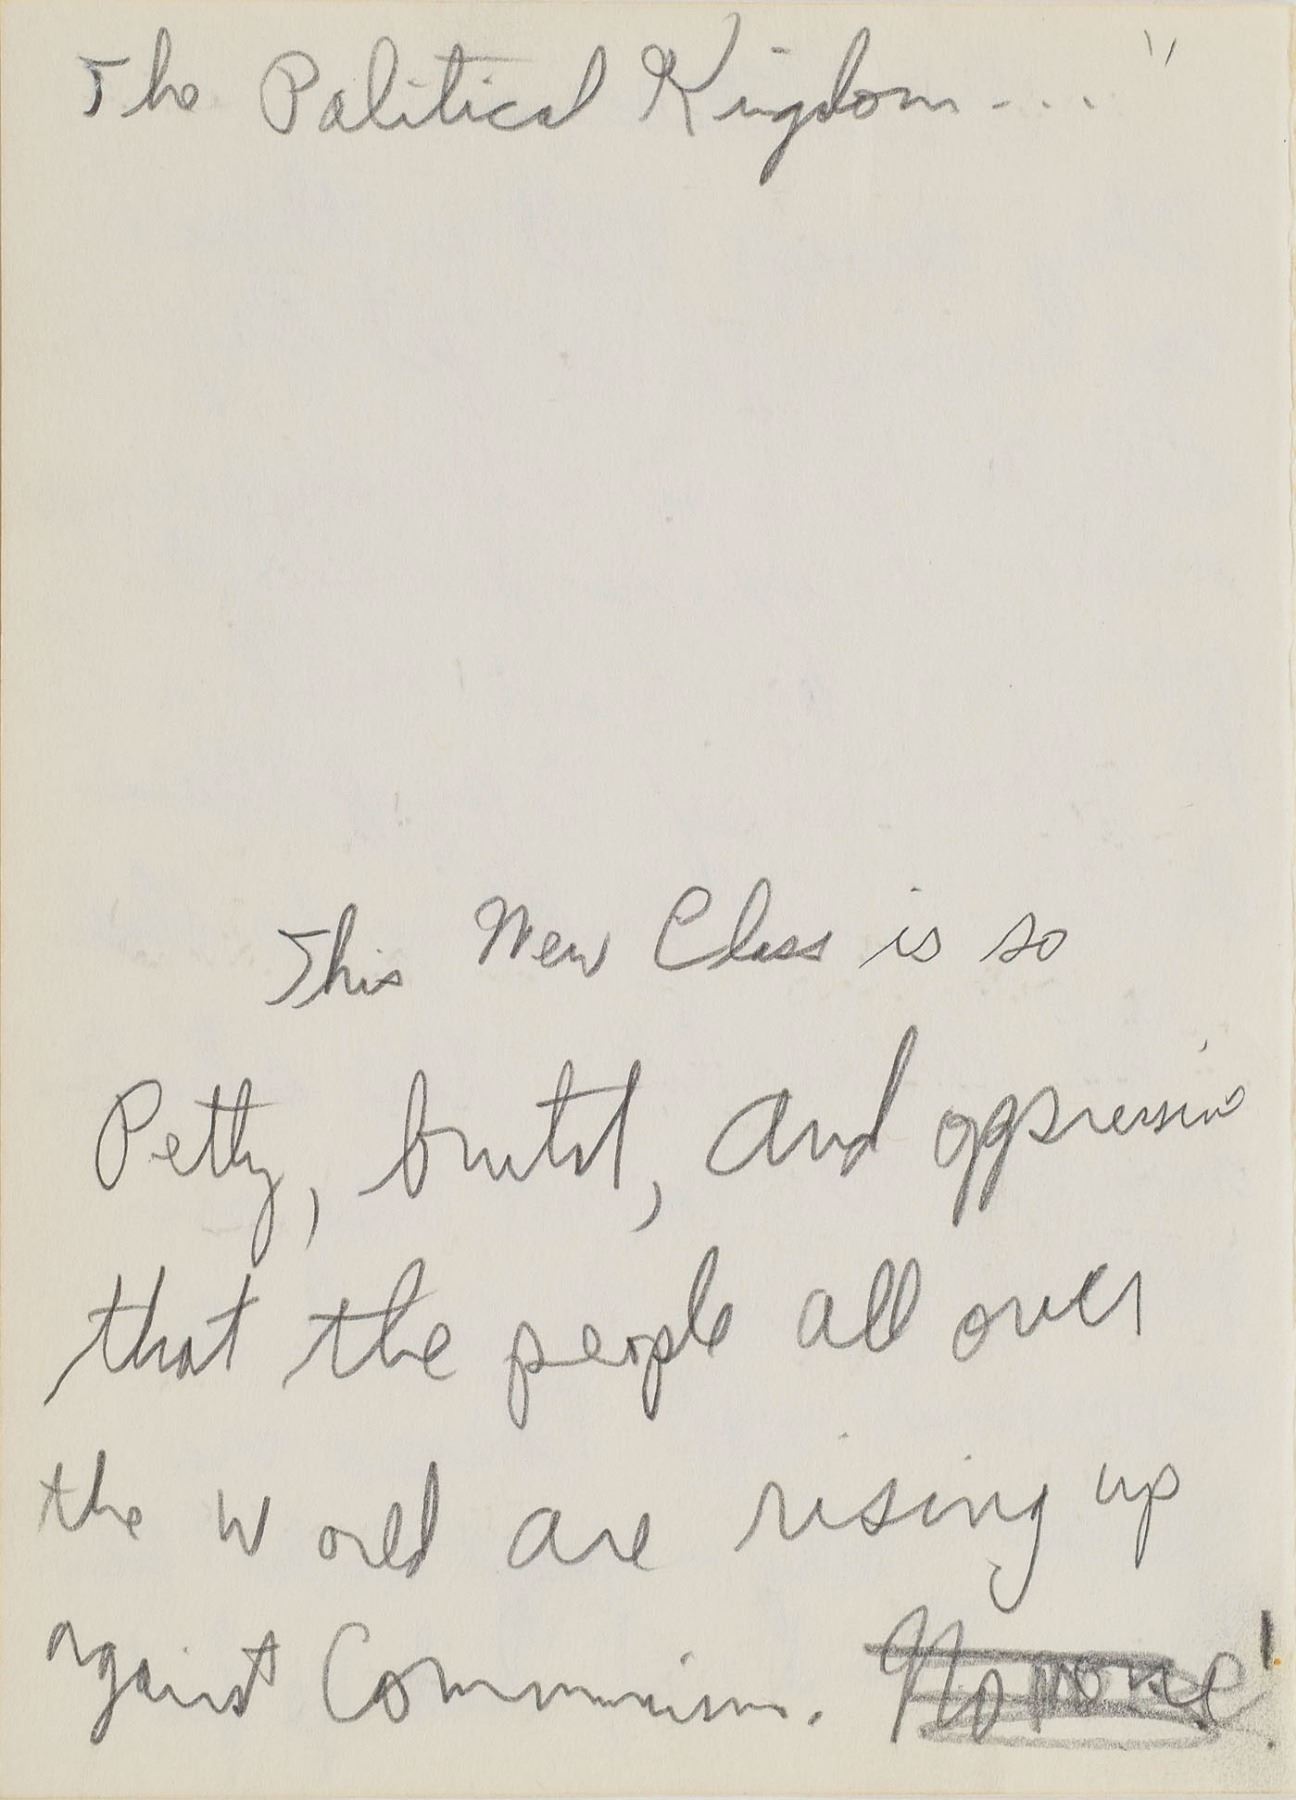 The Political Kingdom - . . . "
This New Class is so
Petty, brutal, and oppressive
that the people all over
the world are rising up
against Communism. No more!